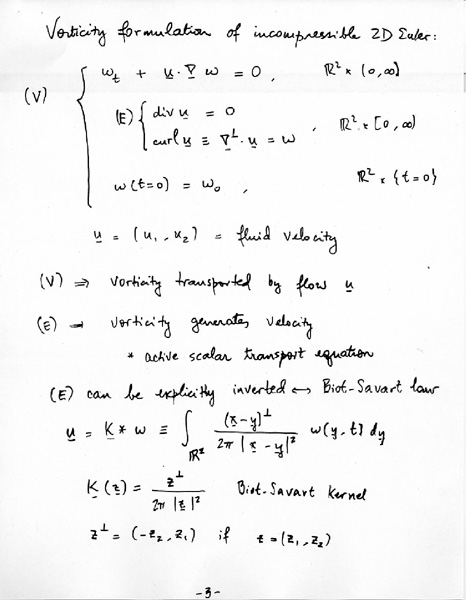 Vorticity formulation of incompressible 2D Euler:
(V) { ω_t + u·∇ω = 0, ℝ² × (0,∞)
(E) { div u = 0
curl u ≡ ∇^⊥·u = ω , ℝ² × [0,∞)
ω(t=0) = ω₀ , ℝ² × {t=0}
u = (u₁, u₂) = fluid velocity
(V) ⇒ vorticity transported by flow u
(E) → vorticity generates velocity
* active scalar transport equation
(E) can be explicitly inverted ↔ Biot-Savart law
u = K * ω ≡ ∫_{ℝ²} (x-y)^⊥ / 2π|x-y|² ω(y,t) dy
K(z) = z^⊥ / 2π|z|² Biot-Savart Kernel
z^⊥ = (-z₂, z₁) if z = (z₁, z₂)
-3-